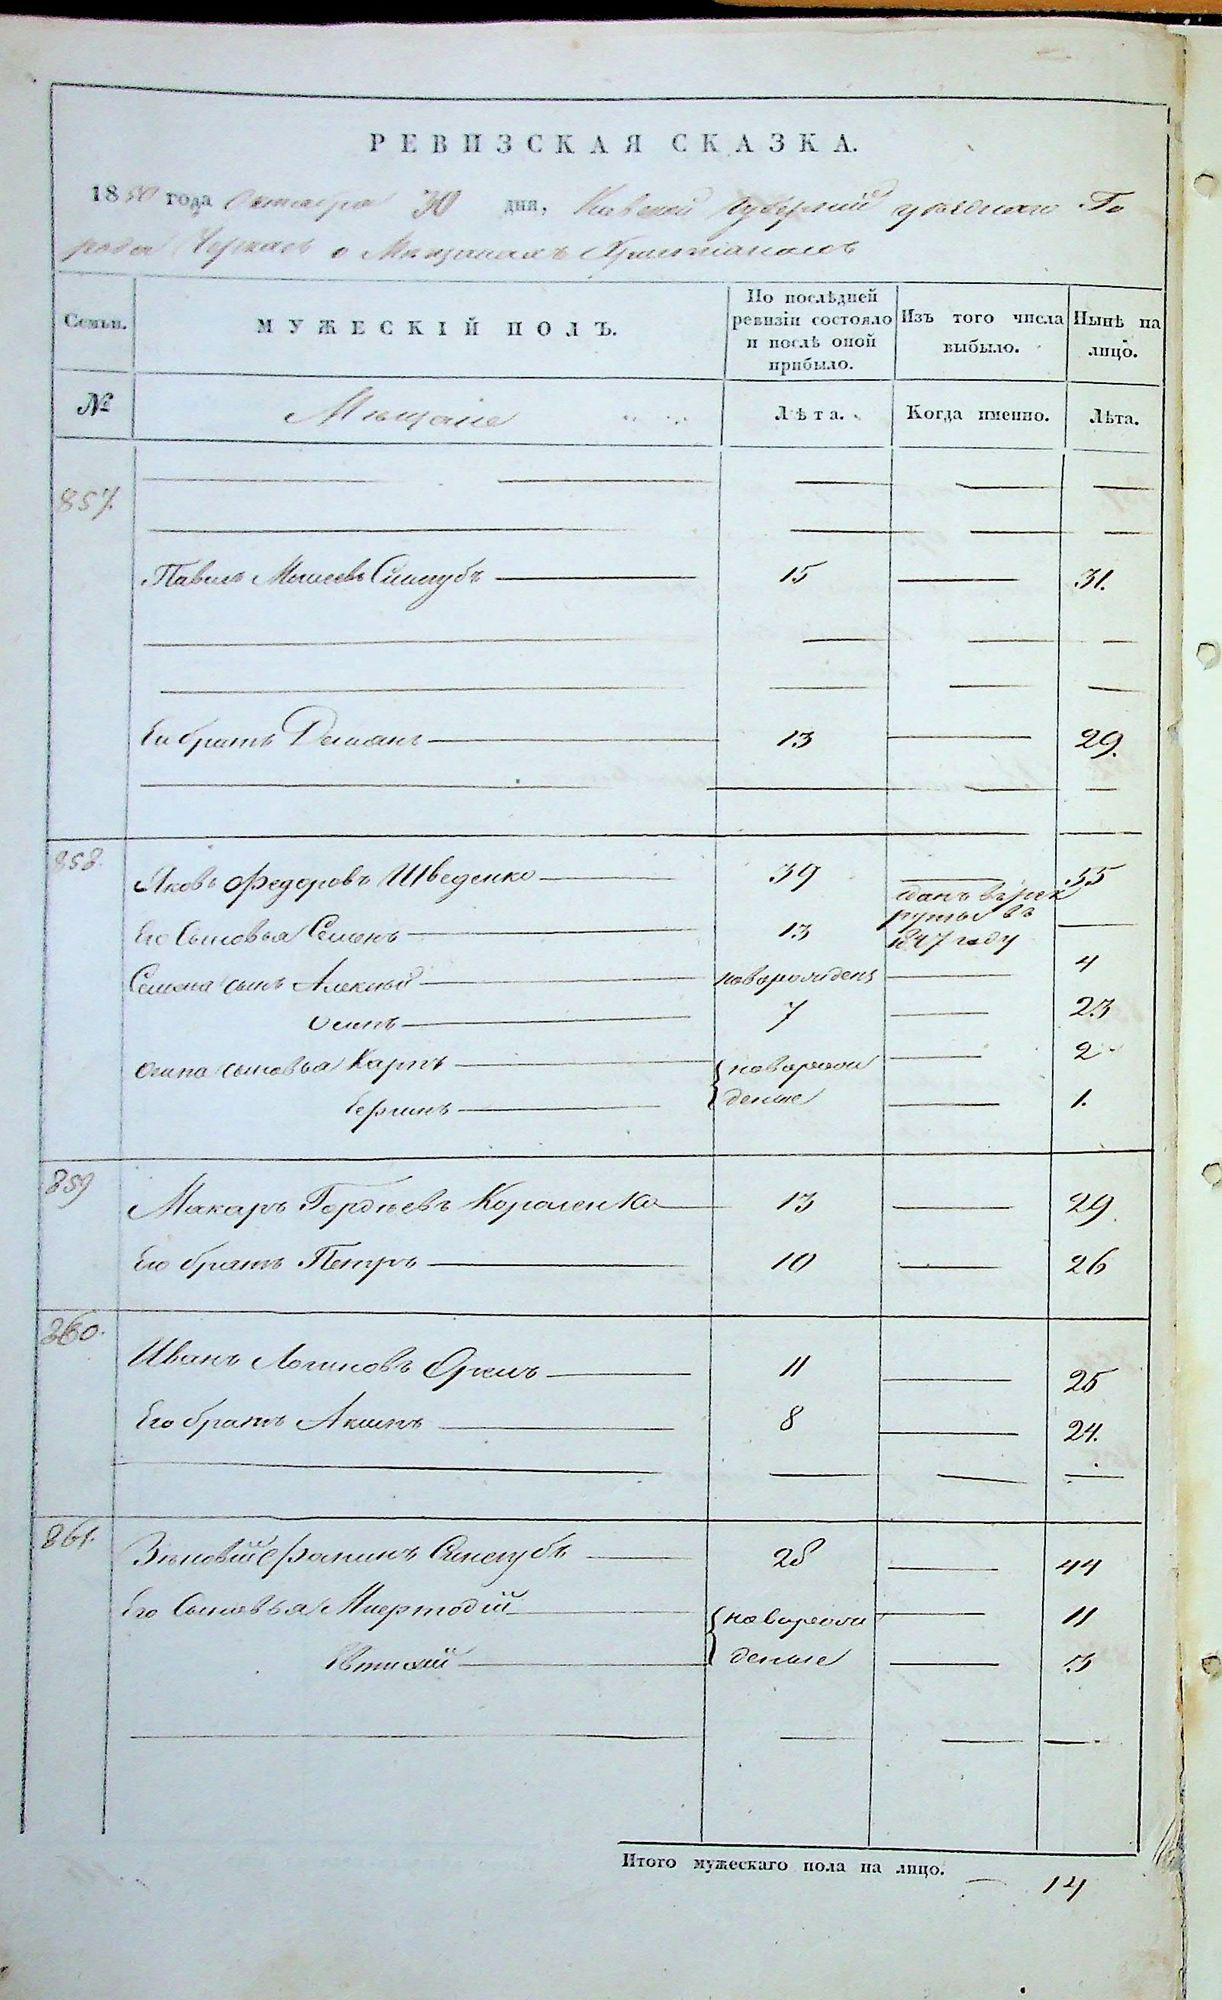 РЕВИЗСКАЯ СКАЗКА.
1850 года Октября 30 дня, Киевской Губерніи уезднаго Го
рода Черкас о Мещанахъ Христіанахъ
Семьи.
МУЖЕСКІЙ ПОЛЪ.
По послѣдней ревизіи состояло и послѣ оной прибыло.
Изъ того числа выбыло.
Нынѣ на лицо.
№ Мещане Лѣта. Когда именно. Лѣта.
857.
Павелъ Моисеевъ 15 31.
Его братъ Демианъ 13 29.
858.
Яковъ Федоровъ Шведенко 39 55
Его Сыновья Семенъ 13 сданъ въ рек
руты въ
1847 году
Семена сынъ Алексей новорожденъ 4
Осипъ 7 23
Осипа сыновья Карпъ новорож 2
дение 1.
859
Макаръ Гордѣевъ Короленко 13 29.
Его братъ Петръ 10 26
860.
Иванъ Логиновъ 11 25
Его братъ Акимъ 8 24.
861.
Зѣновій 28 44
Его Сыновья новорож 11
Евтихій дение 3
Итого мужескаго пола на лицо. 14